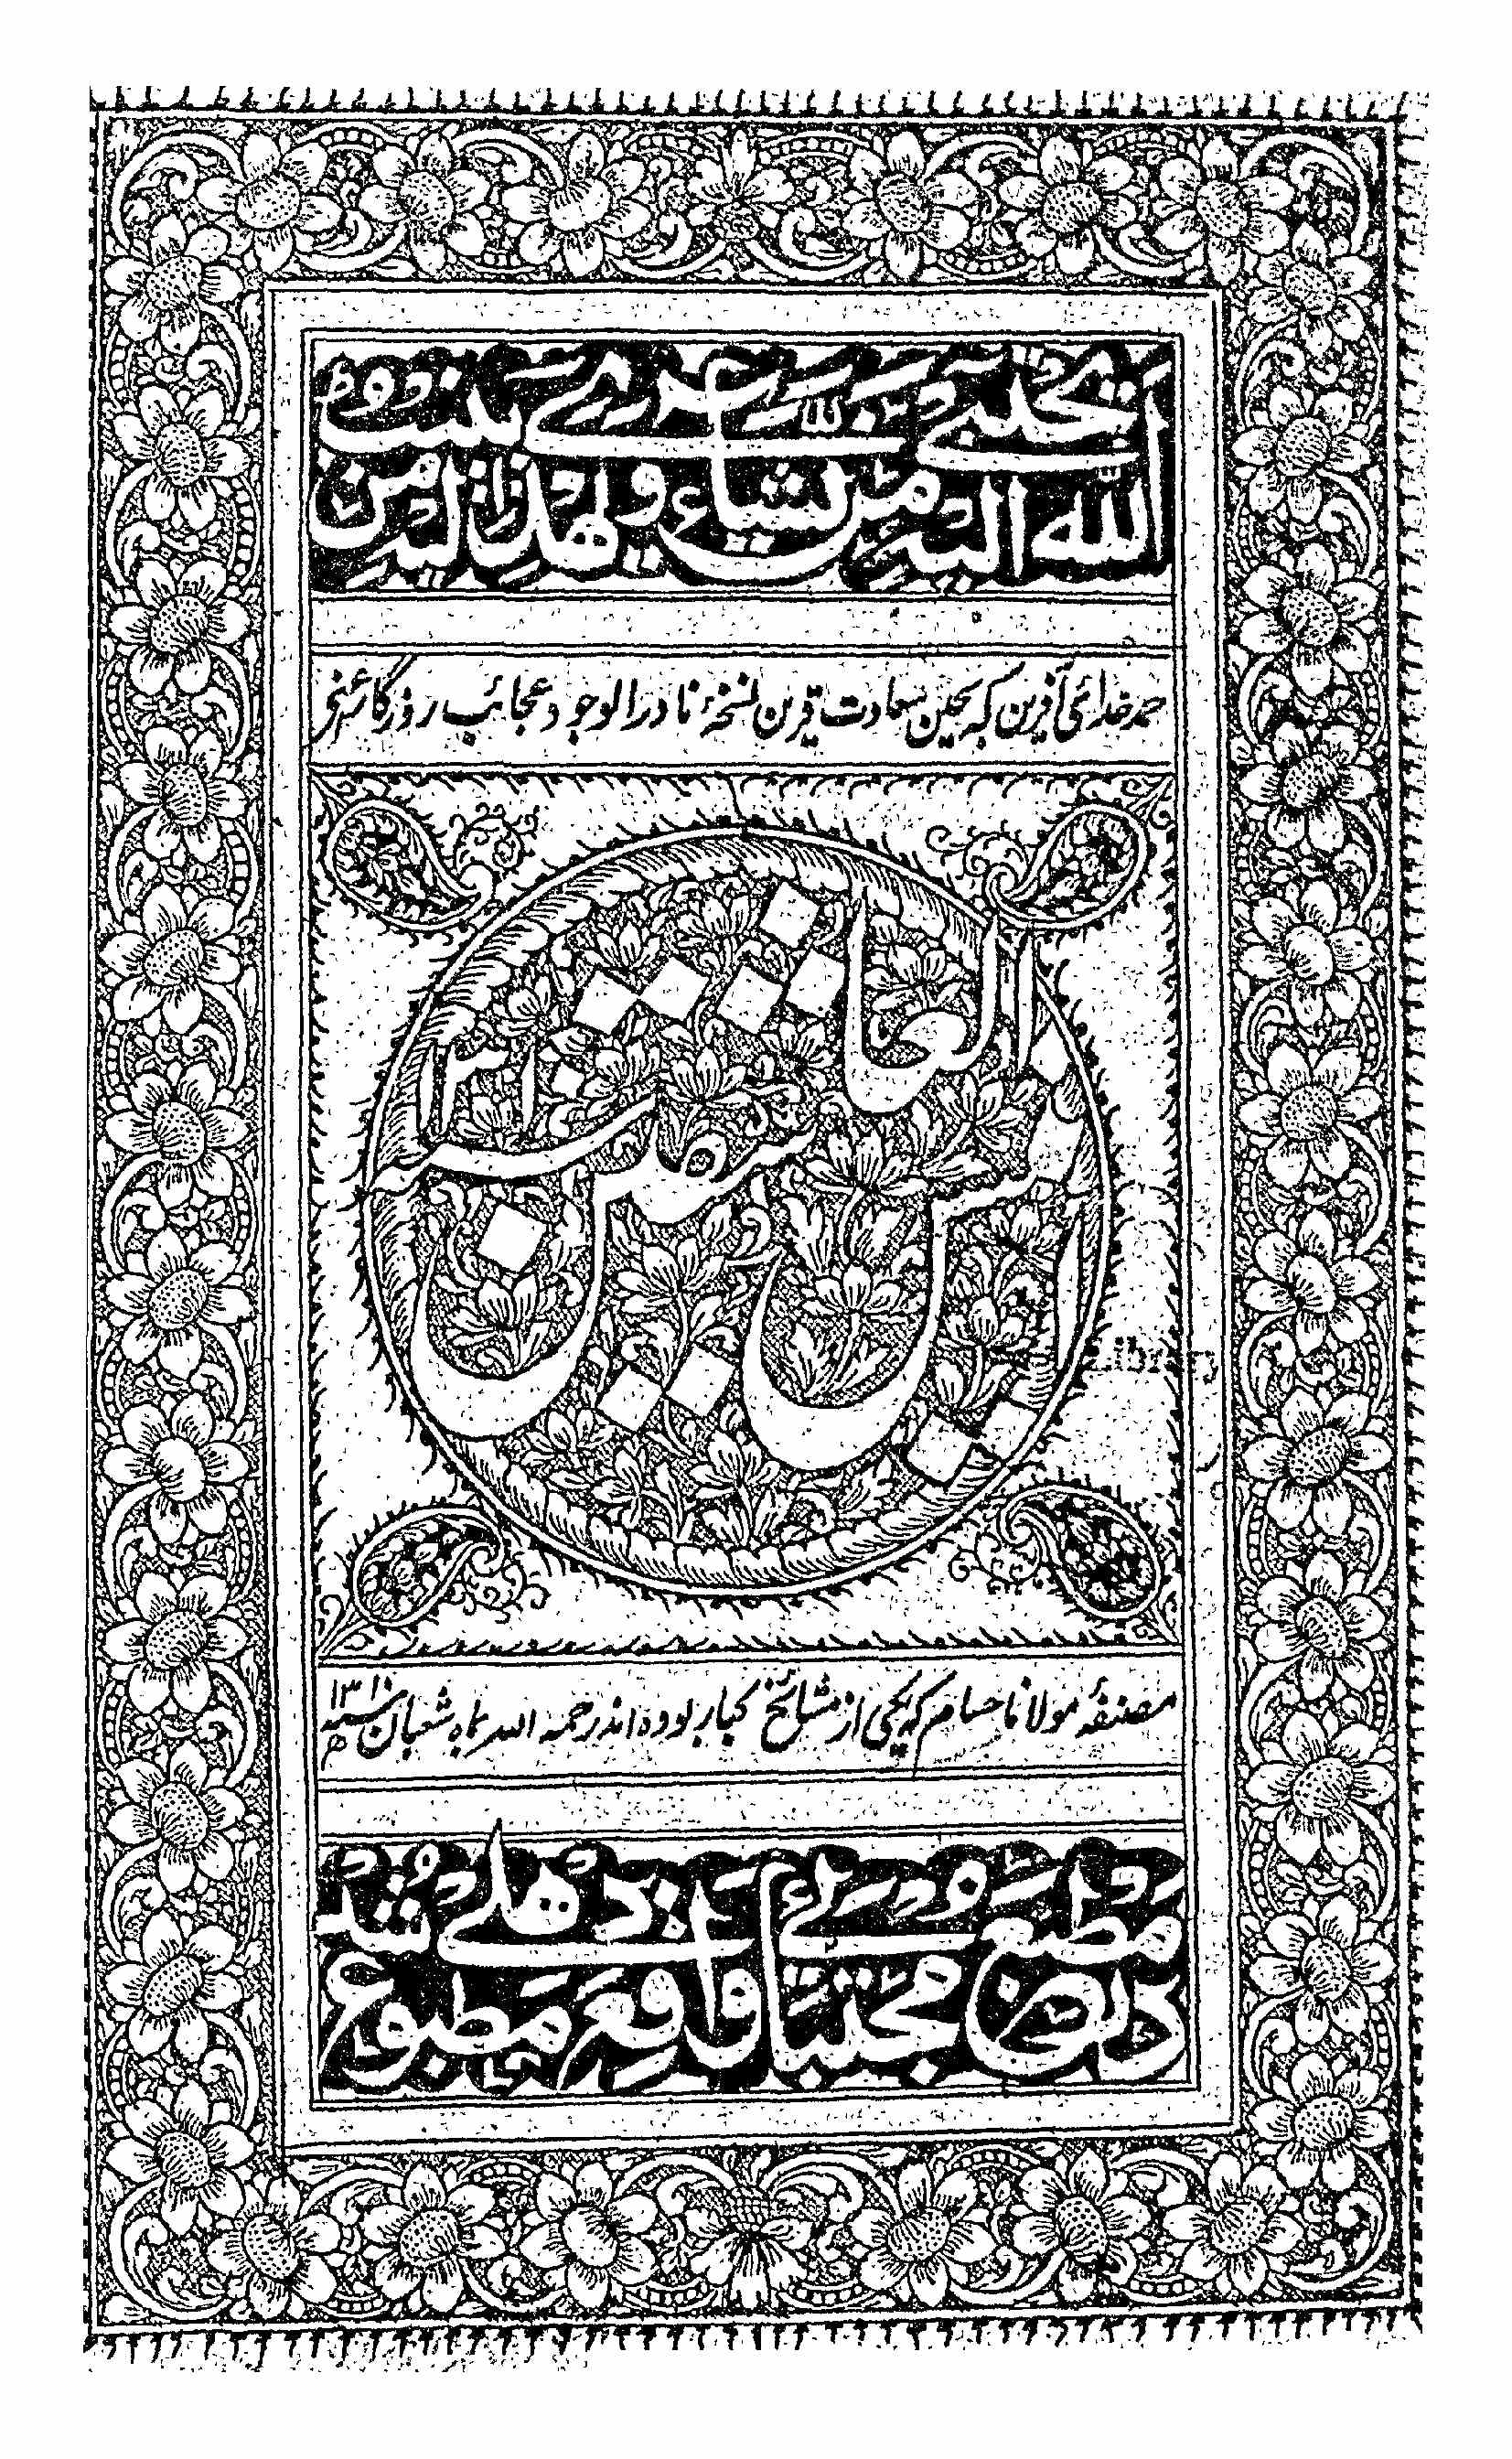 الله يجتبي اليه من يشاء ويهدي اليه من ينيب
حمد خدای آفرین که بحین سعادت قرین نسخهٔ نادر الوجود عجائب روزگار اعنی
انیس العاشقین
مصنفهٔ مولانا حسام که یکی از مشائخ کبار بوده اند رحمه الله بماه شعبان سنه ۱۳۱۰ ھ
در مطبع مجتبائی واقع دهلی مطبوع شد